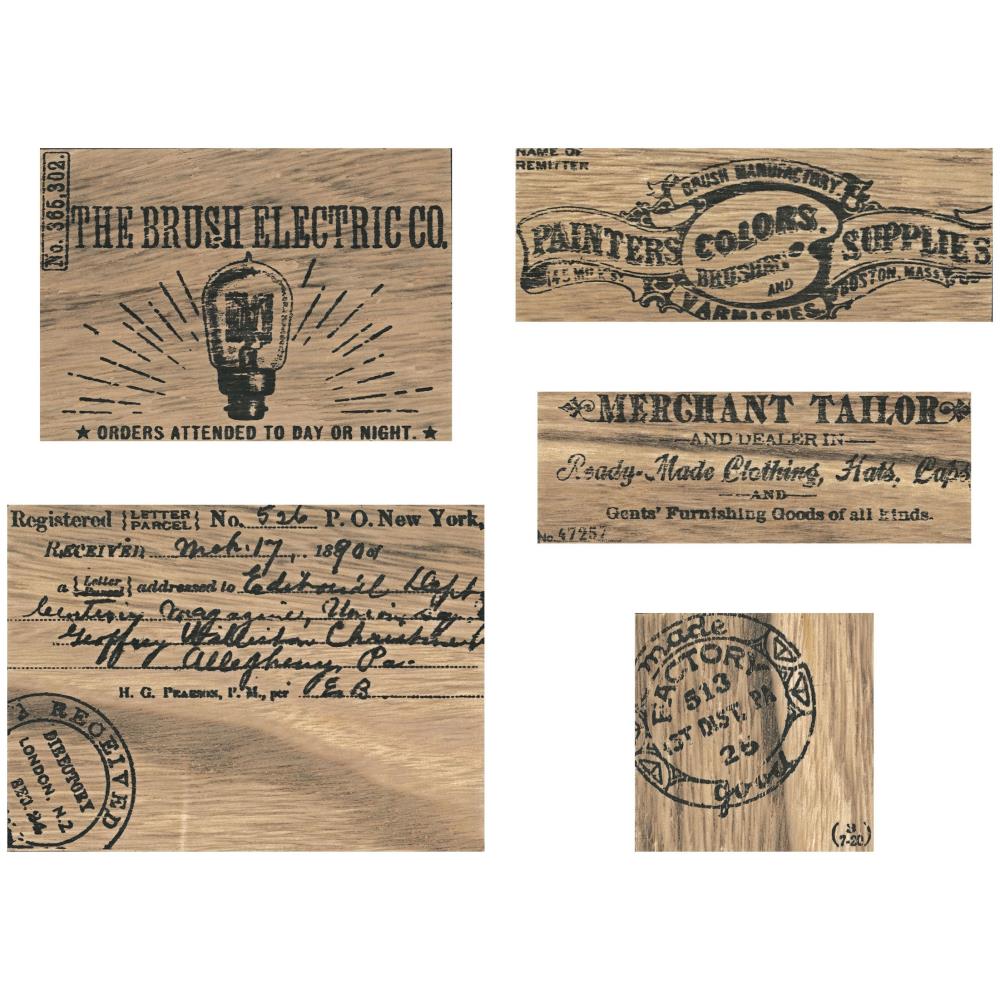 No. 365,302.
THE BRUSH ELECTRIC CO.
★ ORDERS ATTENDED TO DAY OR NIGHT. ★
NAME OF
REMITTER
BRUSH MANUFACTORY.
PAINTERS COLORS. SUPPLIES
BRUSHES
AND
VARNISHES.
BOSTON, MASS.
MERCHANT TAILOR
AND DEALER IN
Ready-Made Clothing, Hats, Caps
AND
Gents' Furnishing Goods of all kinds.
No. 47257
Registered {LETTER PARCEL} No. 526 P. O. New York,
RECEIVED Mch. 17, 1890 of
a {Letter Parcel} addressed to Editorial Dept
Century Magazine, Union Sq.
Geoffrey Williston Christine
Allegheny, Pa.
H. G. PEARSON, P. M., per E. B.
RECEIVED
DIRECTORY
LONDON. N.Z
DEC. 24
made
FACTORY
513
1ST DIST. PA
26
good
(3
7-20)